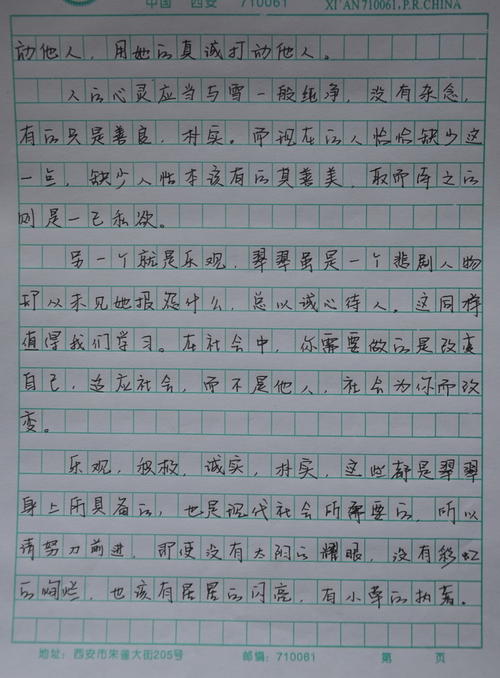 中国 西安 710061 XI'AN710061,P.R.CHINA
动他人，用她的真诚打动他人。
人的心灵应当与雪一般纯净，没有杂念，
有的只是善良，朴实。而现在的人恰恰缺少这
一点，缺少人性本该有的真善美，取而库之的
则是一己私欲。
另一个就是乐观，翠翠虽是一个悲剧人物
却从未见她报怨什么，总以诚心待人。这同样
值得我们学习。在社会中，你需要做的是改变
自己，适应社会，而不是他人，社会为你而改
变。
乐观，积极，诚实，朴实，这些都是翠翠
身上所具备的，也是现代社会所需要的，所以
请努力前进，即便没有太阳的耀眼，没有彩虹
的绚烂，也该有星星的闪亮，有小草的执著。
地址：西安市朱雀大街205号 邮编：710061 第 页